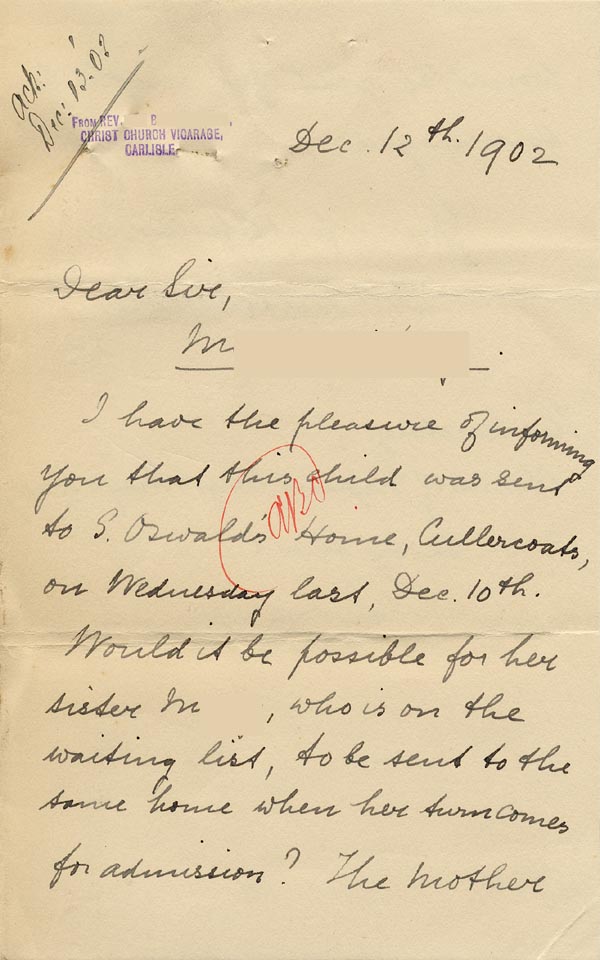 ack:
Dec: 13.02
FROM REV. B
CHRIST CHURCH VICARAGE,
CARLISLE
Dec. 12th. 1902
Dear Sir,
M
I have the pleasure of informing
you that this child was sent
to S. Oswald's Home, Cullercoats,
on Wednesday last, Dec. 10th.
Would it be possible for her
sister M , who is on the
waiting list, to be sent to the
same home when her turn comes
for admission? The Mother